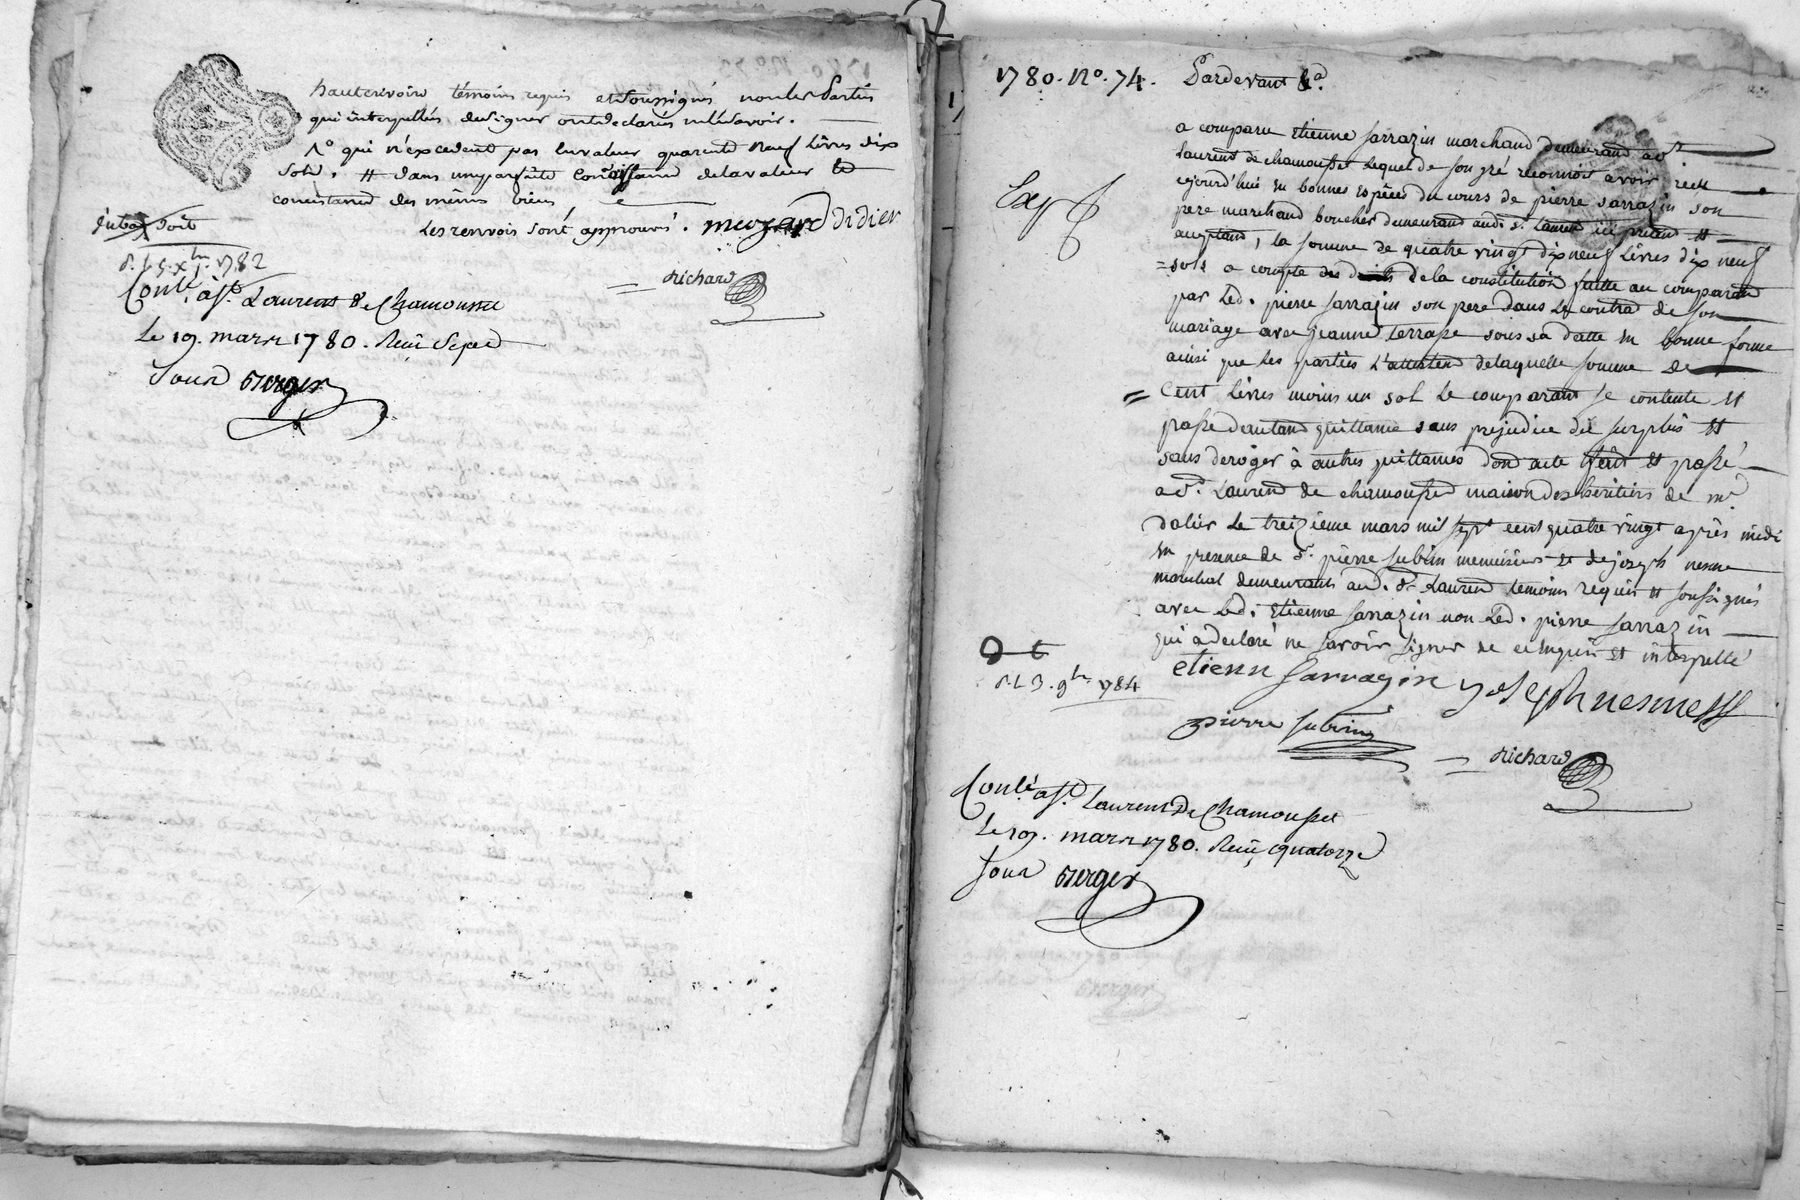 hauterivoire témoins requis et soussignés non les Parties
qui interpellés de signer ont déclarés ne le savoir.
1º qui n'excedent pas la valeur quarente neuf livres dix
sols. # dans une parfaite conoissance de la valeur et
consistance des mêmes biens
Les renvois sont approuvés. meozard didier
Richard
d. l. 5. xbre. 1782
Conlé. a St. Laurent de Chamousset
Le 19. mars 1780. Reçu Sept
Sous Berger
1780. No. 74. Pardevant &a.
a comparu etienne sarrazin marchand demeurand a St.
Laurent de chamousset lequel de son gré reconnoit avoir reçu
cejourd'hui en bonnes especes du cours de pierre sarrazin son
pere marchand boucher demeurand aud. St. Laurent ici present et
acceptand, la somme de quatre vingt dix neuf livres dix neuf
sols a compte de la constitution faitte au comparand
par led. pierre sarrazin son pere dans le contrat de son
mariage avec jeanne terrasse sous sa datte en bonne forme
ainsi que les parties l'attestent de laquelle somme de
cent livres moins un sol le comparant se contente et
passe d'autand quittance sans prejudice du surplus et
sans deroger à autres quittances dond acte fait et passé
a St. Laurend de chamousset maison des heritiers de me
dolier le treizieme mars mil sept cent quatre vingt après midi
en presence de Sr. pierre subrin menuisier et de joseph nesme
marechal demeurants aud. St. Laurend temoins requis et soussignés
avec led. etienne sarrazin non led. pierre sarrazin
qui a declaré ne savoir signer de ce enquis et interpellé
Exp
d. l. 3. 9bre 1784
etienn sarrazin joseph nesme
pierre subrin
Richard
Conlé. a St. Laurent De Chamousset
Le 19. mars 1780. Reçu quatorze
Sous Berger